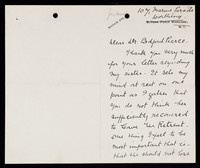 107 Marine Parade
Worthing
Dear Dr Bedford Pierce.
Thank you very much
for your letter regarding
my sister. It sets my
mind at rest on one
point as I gather that
you do not think her
sufficiently recovered
to leave The Retreat.
One thing I feel to be
most important that is -
that she should not lose